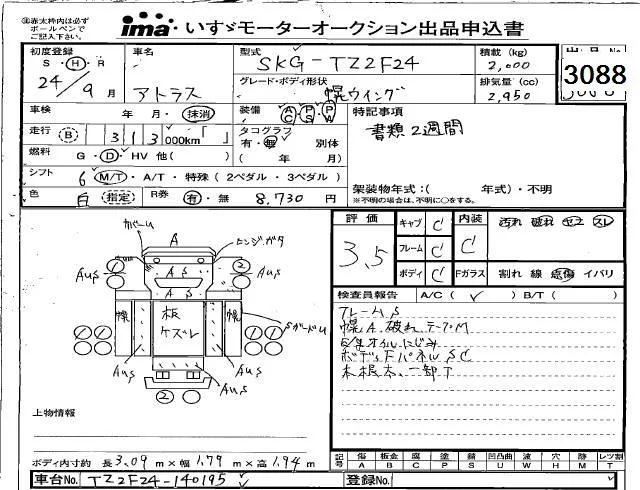 ※赤太枠内は必ず
ボールペンで
ご記入下さい。
ima いすゞモーターオークション出品申込書
初度登録 車名 型式 積載 (kg) 出品No.
S・H・R SKG-TZ2F24 2,000 3088
24/9月 アトラス グレード・ボディ形状 幌ウイング 排気量 (cc) 2,950
車検 年・月・抹消 装備 AC PS PW 特記事項
走行 B 313 000km「 」 タコグラフ 有・無 別体 書類2週間
燃料 G・D・HV 他( ) ( 年 月)
シフト 6 M/T・A/T・特殊(2ペダル・3ペダル) 架装物年式:( 年式)・不明
色 白 指定 R券 有・無 8,730 円 ※不明の場合は、不明に○をする。
評価 キャブ C 内装 汚れ 破れ ヤコ スレ
3.5 フレーム C C
ボディ C Fガラス 割れ 線 点傷 イバリ
検査員報告 A/C( ✓ ) B/T( )
フレームS
幌A.破れ.テープM
E/Mオイルにじみ
ボディFパネルSC
木根太.一部T
A ヒンジガタ
AUS 2 AS AUS
AS
幌 板 ケズレ 幌 SガードU
AUS AUS
AUS
2
上物情報
ボディ内寸約 長3.09m×幅1.79m×高1.94m
記号 傷 板金 腐 塗 錆 凹凸曲 波 穴 跡 レッツ割
A B C P S U W H M T
車台No. TZ2F24-140195 登録No.